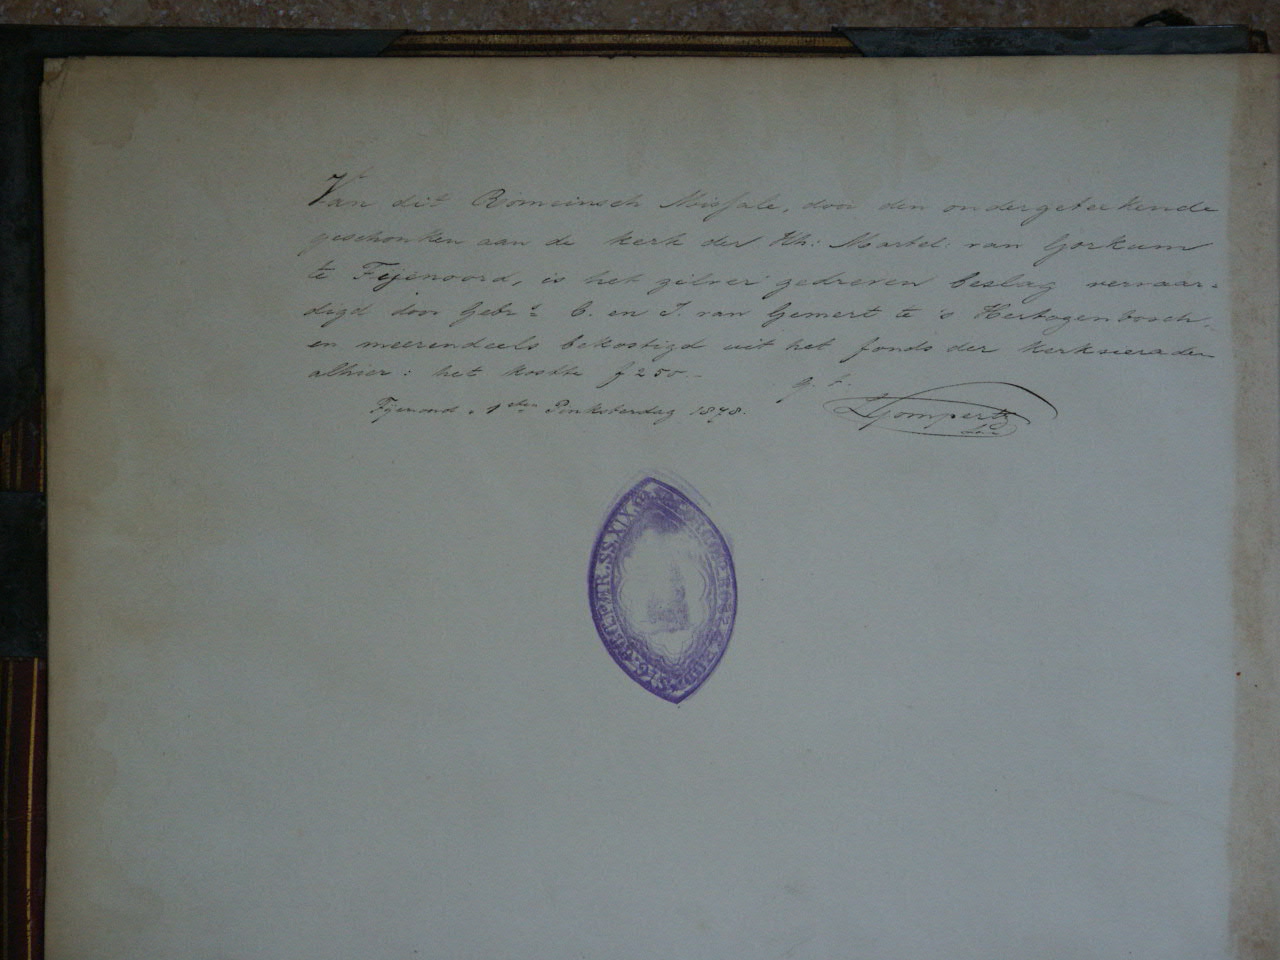 Van dit Romeinsch Missale, door den ondergeteekende
geschonken aan de kerk der Hh: Martel: van Gorkum
te Fijenoord, is het zilver gedreven beslag vervaar-
digd door Gebrs C. en J. van Gemert te 's Hertogenbosch,
en meerendeels bekostigd uit het fonds der kerksieraden
alhier: het kostte f 250 -
Fijenoord, 1sten Pinksterdag 1878.
Gompertz
MAR. SS. XIX